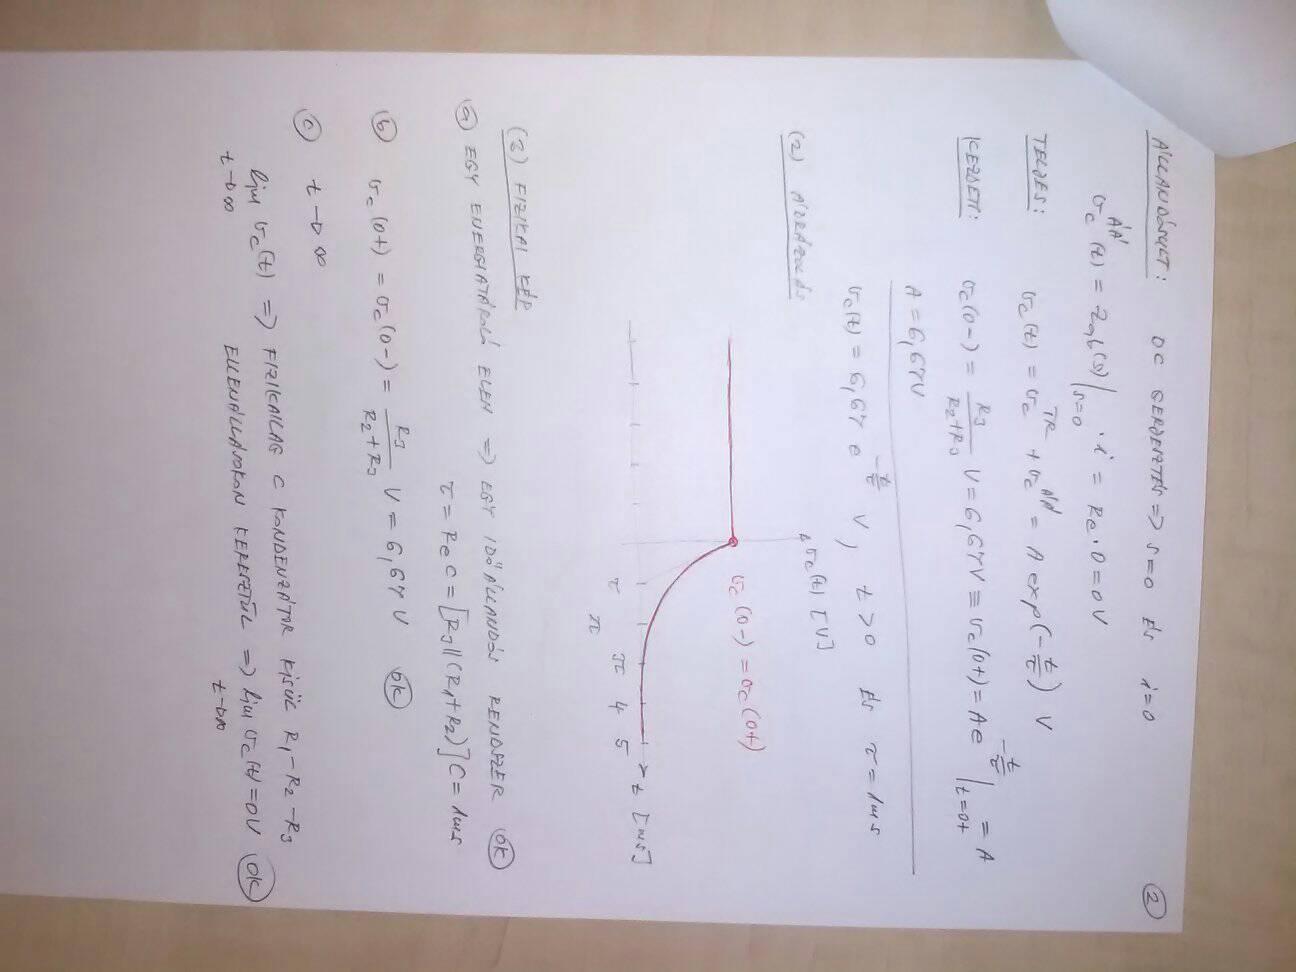 ②
ÁLLANDÓSULT: DC GERJESZTÉS => s=0 ÉS i=0
v_c^ÁÁ(t) = Z_ab(s)|_s=0 · i = Re·0=0V
TELJES: v_c(t) = v_c^TR + v_c^ÁÁ = A exp(-t/τ) V
KEZDETI: v_c(0-) = R3/(R2+R3) V = 6,67V ≡ v_c(0+) = A e^(-t/τ)|_t=0+ = A
A = 6,67V
v_c(t) = 6,67 e^(-t/τ) V, t>0 ÉS τ=1ms
(2) ÁBRÁZOLÁS
v_c(t) [V]
v_c(0-) = v_c(0+)
τ 4 5 t [ms]
(3) FIZIKAI KÉP
ⓐ EGY ENERGIATÁROLÓ ELEM => EGY IDŐÁLLANDÓS RENDSZER OK
τ = ReC = [R3||(R1+R2)]C = 1ms
ⓑ v_c(0+) = v_c(0-) = R3/(R2+R3) V = 6,67 V OK
ⓒ t→∞
lim v_c(t) => FIZIKAILAG C KONDENZÁTOR KISÜL R1-R2-R3
t→∞
ELLENÁLLÁSOKON KERESZTÜL => lim v_c(t)=0V OK
t→∞